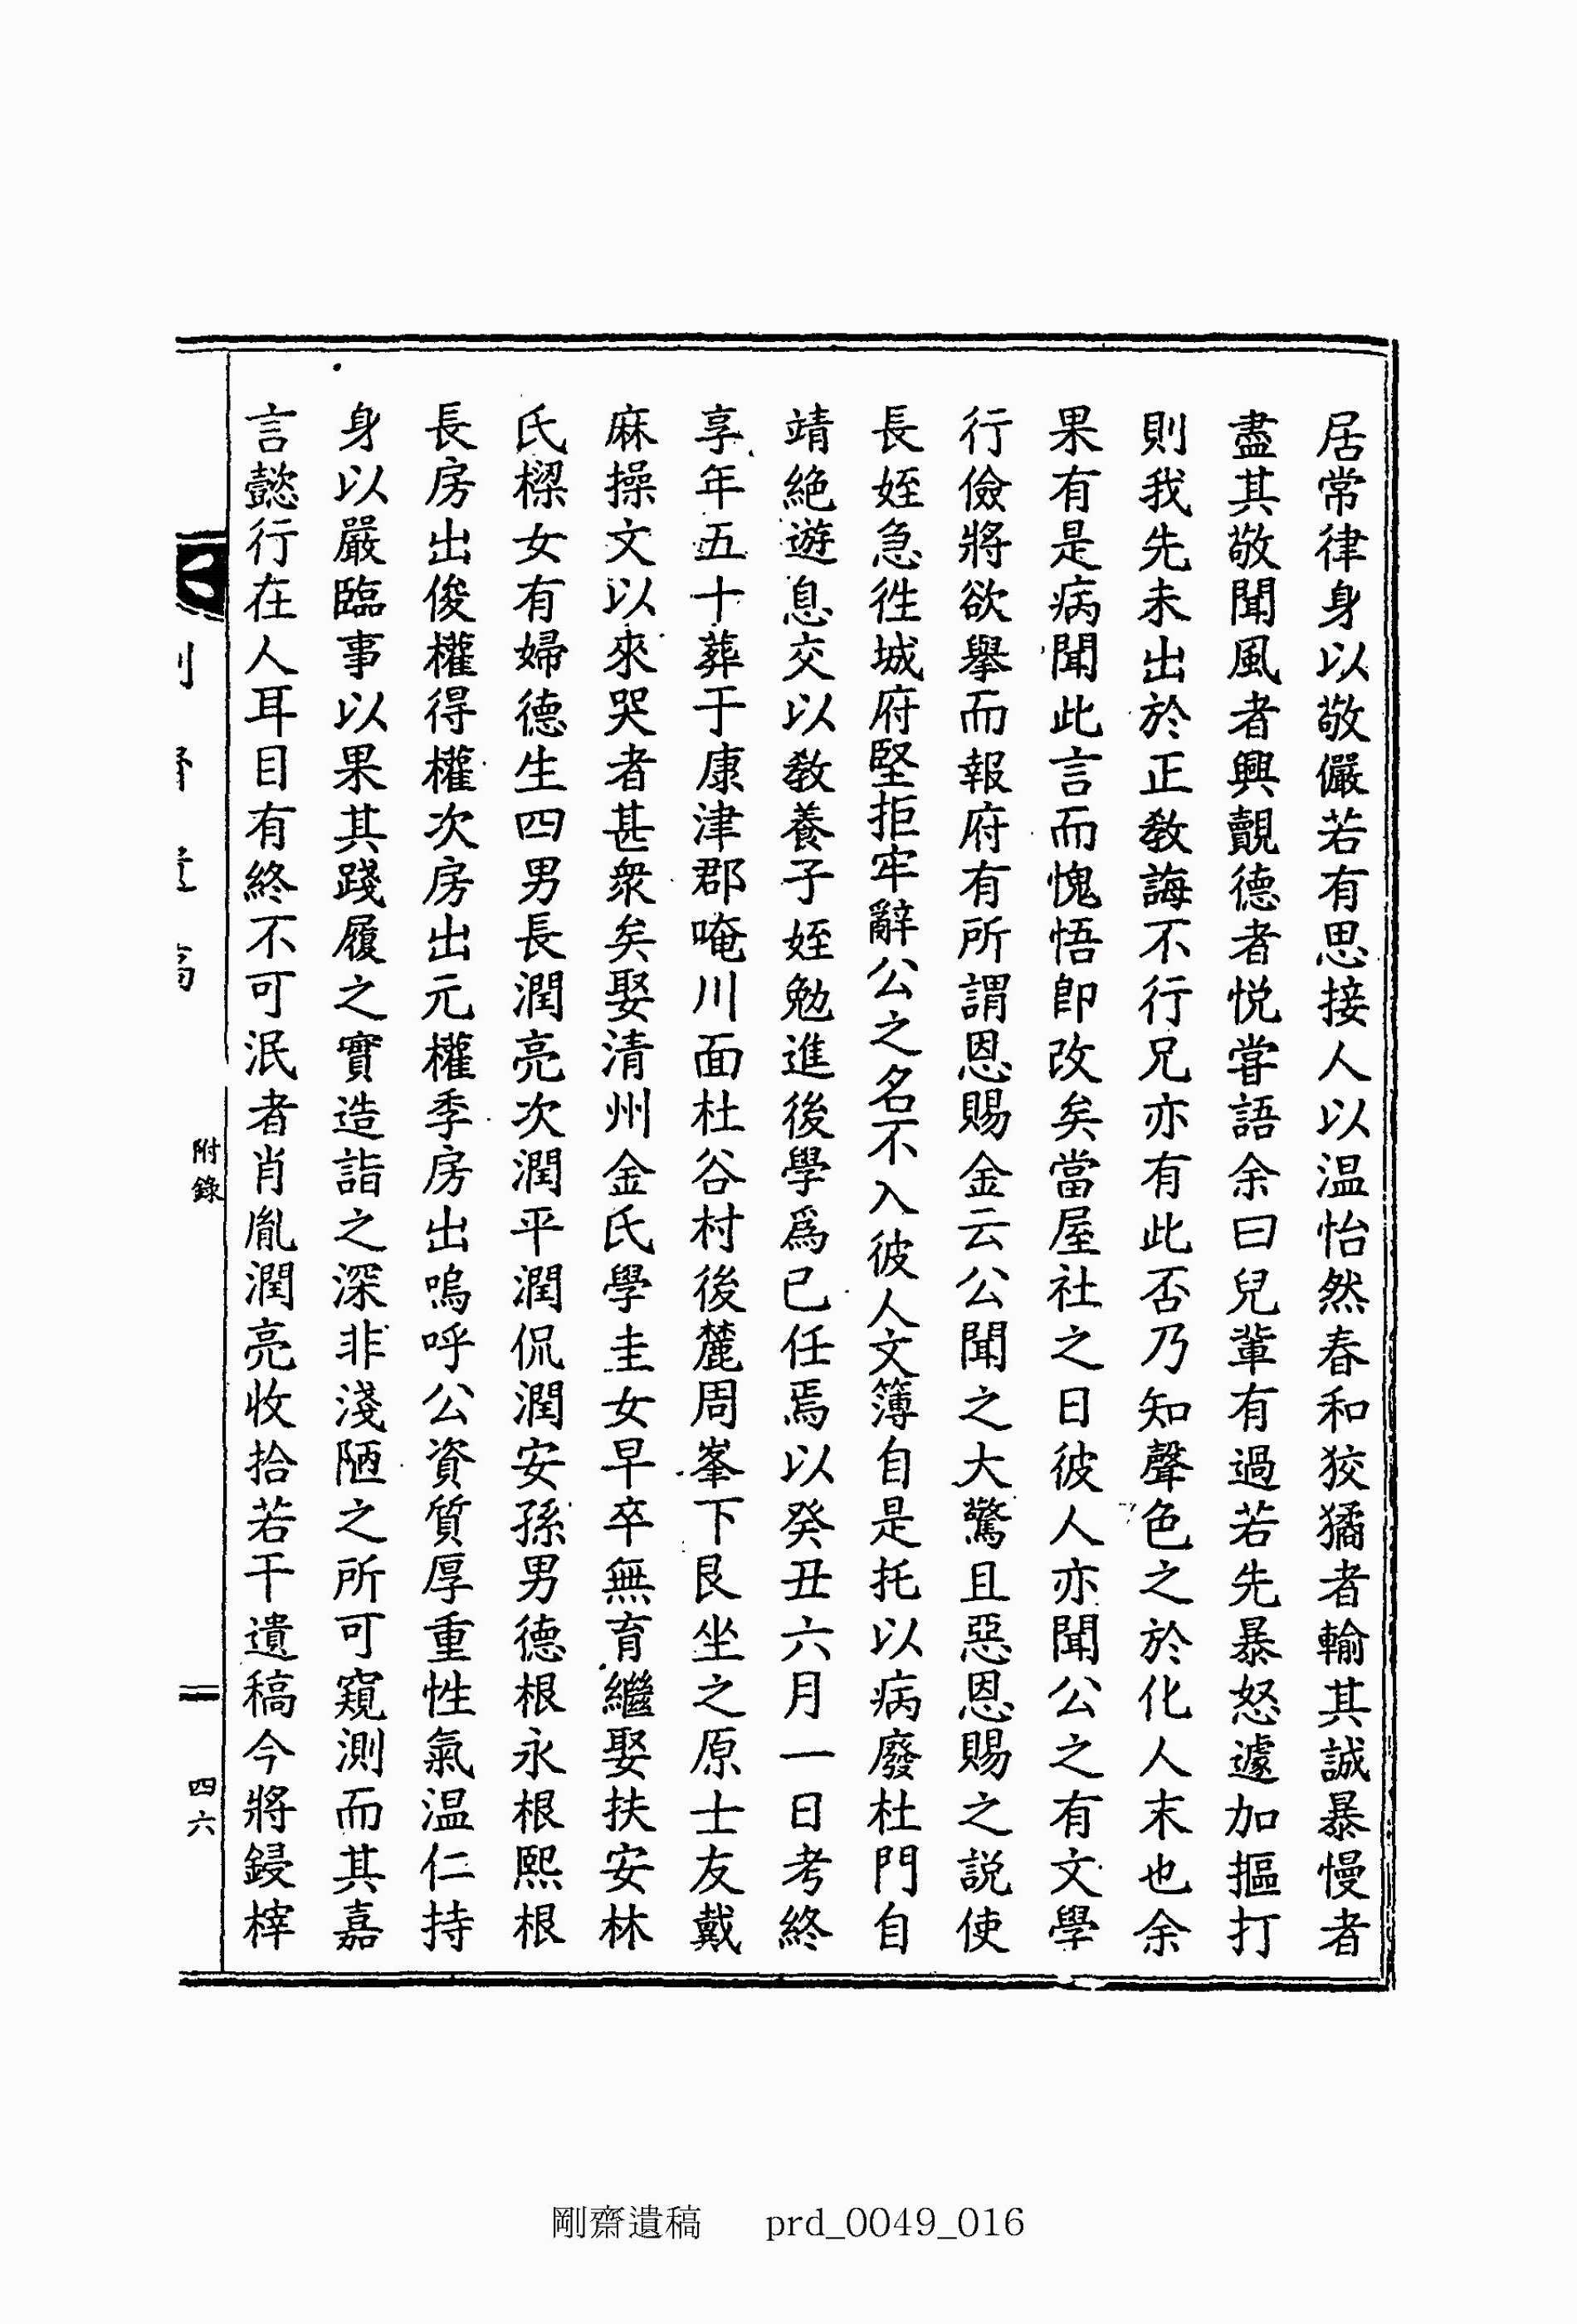 居常律身以敬儼若有思接人以温怡然春和狡獝者輸其誠暴慢者
盡其敬聞風者興覿德者悦甞語余曰兒輩有過若先暴怒遽加摳打
則我先未出於正教誨不行兄亦有此否乃知聲色之於化人末也余
果有是病聞此言而愧悟卽改矣當屋社之日彼人亦聞公之有文學
行儉將欲擧而報府有所謂恩賜金云公聞之大驚且惡恩賜之説使
長姪急徃城府堅拒牢辭公之名不入彼人文簿自是托以病廢杜門自
靖絶遊息交以教養子姪勉進後學爲已任焉以癸丑六月一日考終
享年五十葬于康津郡唵川面杜谷村後麓周峯下艮坐之原士友戴
麻操文以來哭者甚衆矣娶清州金氏學圭女早卒無育繼娶扶安林
氏樑女有婦德生四男長潤亮次潤平潤侃潤安孫男德根永根熙根
長房出俊權得權次房出元權季房出嗚呼公資質厚重性氣温仁持
身以嚴臨事以果其踐履之實造詣之深非淺陋之所可窺測而其嘉
言懿行在人耳目有終不可泯者肖胤潤亮收拾若干遺稿今將鋟梓
附錄
四六
剛齋遺稿 prd_0049_016